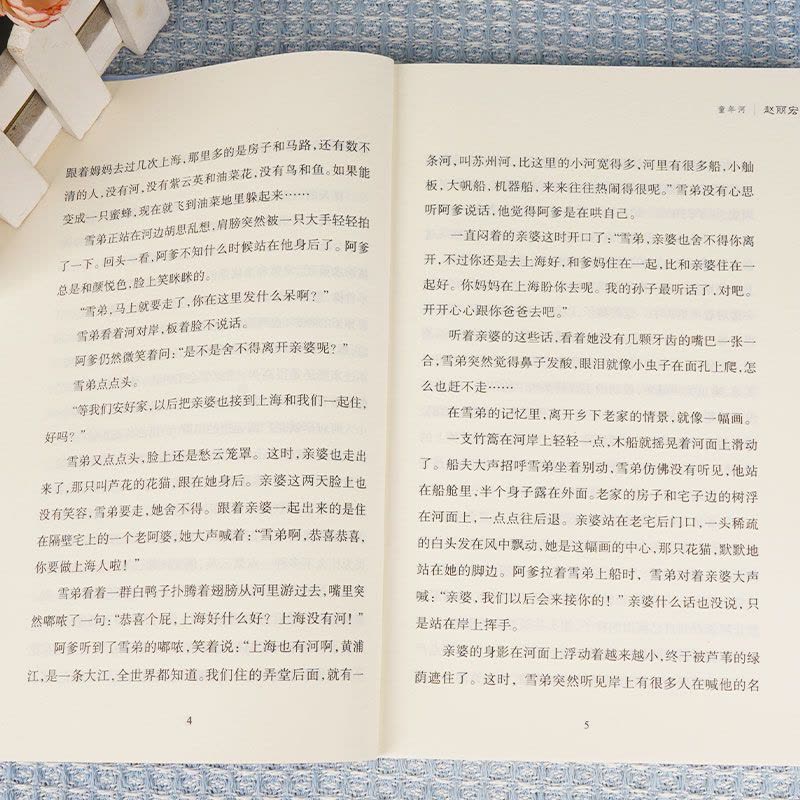 跟着姆妈去过几次上海，那里多的是房子和马路，还有数不
清的人，没有河，没有紫云英和油菜花，没有鸟和鱼。如果能
变成一只蜜蜂，现在就飞到油菜地里躲起来……
雪弟正站在河边胡思乱想，肩膀突然被一只大手轻轻拍
了一下。回头一看，阿爹不知什么时候站在他身后了。阿爹
总是和颜悦色，脸上笑眯眯的。
“雪弟，马上就要走了，你在这里发什么呆啊？”
雪弟看着河对岸，板着脸不说话。
阿爹仍然微笑着问：“是不是舍不得离开亲婆呢？”
雪弟点点头。
“等我们安好家，以后把亲婆也接到上海和我们一起住，
好吗？”
雪弟又点点头，脸上还是愁云笼罩。这时，亲婆也走出
来了，那只叫芦花的花猫，跟在她身后。亲婆这两天脸上也
没有笑容，雪弟要走，她舍不得。跟着亲婆一起出来的是住
在隔壁宅上的一个老阿婆，她大声喊着：“雪弟啊，恭喜恭喜，
你要做上海人啦！”
雪弟看着一群白鸭子扑腾着翅膀从河里游过去，嘴里突
然嘟哝了一句：“恭喜个屁，上海好什么好？上海没有河！”
阿爹听到了雪弟的嘟哝，笑着说：“上海也有河啊，黄浦
江，是一条大江，全世界都知道。我们住的弄堂后面，就有一
4
童年河 | 赵丽宏
条河，叫苏州河，比这里的小河宽得多，河里有很多船，小舢
板，大帆船，机器船，来来往往热闹得很呢。”雪弟没有心思
听阿爹说话，他觉得阿爹是在哄自己。
一直闷着的亲婆这时开口了：“雪弟，亲婆也舍不得你离
开，不过你还是去上海好，和爹妈住在一起，比和亲婆住在一
起好。你妈妈在上海盼你去呢。我的孙子最听话了，对吧。
开开心心跟你爸爸去吧。”
听着亲婆的这些话，看着她没有几颗牙齿的嘴巴一张一
合，雪弟突然觉得鼻子发酸，眼泪就像小虫子在面孔上爬，怎
么也赶不走……
在雪弟的记忆里，离开乡下老家的情景，就像一幅画。
一支竹篙在河岸上轻轻一点，木船就摇晃着河面上滑动
了。船夫大声招呼雪弟坐着别动，雪弟仿佛没有听见，他站
在船舱里，半个身子露在外面。老家的房子和宅子边的树浮
在河面上，一点点往后退。亲婆站在老宅后门口，一头稀疏
的白头发在风中飘动，她是这幅画的中心，那只花猫，默默地
站在她的脚边。阿爹拉着雪弟上船时，雪弟对着亲婆大声
喊：“亲婆，我们以后会来接你的！”亲婆什么话也没说，只
是站在岸上挥手。
亲婆的身影在河面上浮动着越来越小，终于被芦苇的绿
荫遮住了。这时，雪弟突然听见岸上有很多人在喊他的名
5